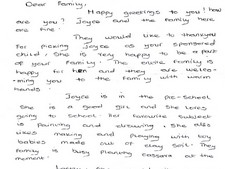 Dear Family,
Happy greetings to you! how
are you? Joyce and the family here
are fine.
They would like to thankyou
for picking Joyce as your sponsored
child. She is very happy to be a part
of your family. The entire family is
happy for her and they are welco-
ming you to the family with warm
hands.
Joyce is in the pre-school
she is a good girl and she loves
going to school. Her favourite subject
is painting and drawing. She also
likes making and playing with toy
babies made out of clay soil. They
family busy planting cassava at the
moment.